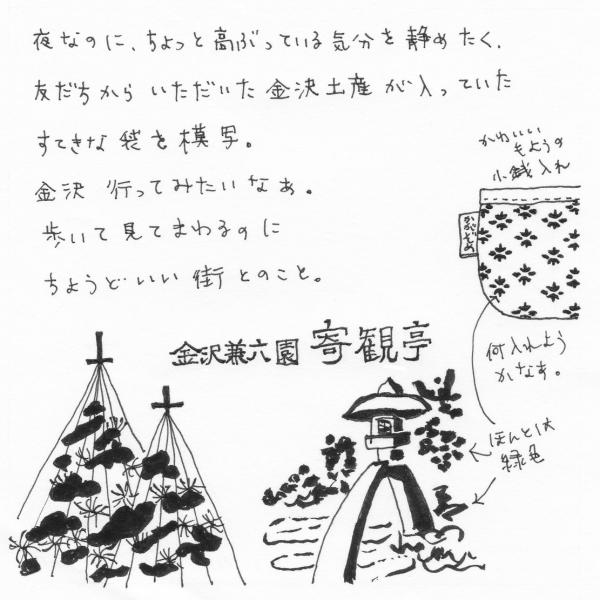 夜なのに、ちょっと高ぶっている気分を静めたく、
友だちから いただいた 金沢土産 が入っていた
すてきな 袋を模写。
金沢 行ってみたいなぁ。
歩いて 見てまわるのに
ちょうどいい 街 とのこと。
かわいい
もようの
小銭入れ
金沢兼六園 寄観亭
何入れよう
かなぁ。
ほんとは
緑色